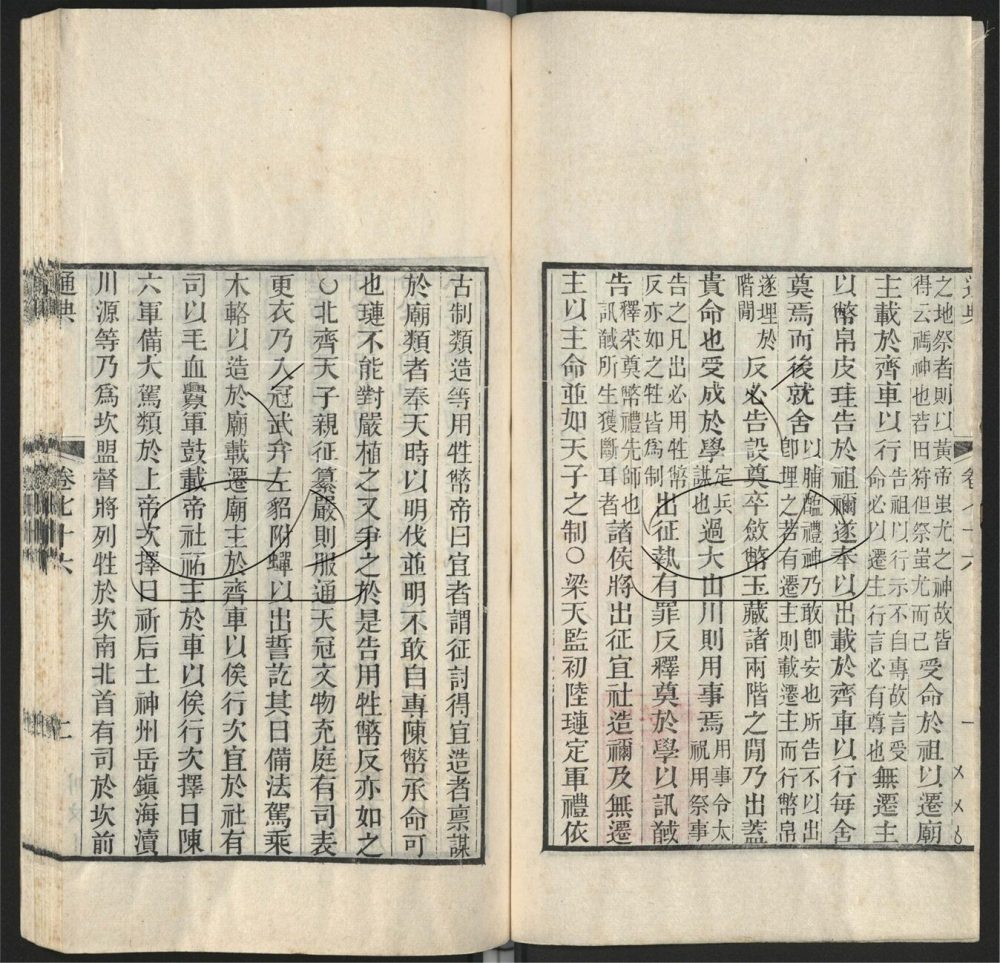 之地祭者則以黃帝蚩尤之神故皆
得云禡神也若田狩但祭蚩尤而已
受命於祖以遷廟
主載於齊車以行
告祖以行示不自專故言受
命必以遷主行言必有尊也
無遷主
以幣帛皮珪告於祖禰遂奉以出載於齊車以行每舍
奠焉而後就舍
以脯醢禮神乃敢卽安也所告不以出
卽埋之若有遷主則載遷主而行幣帛
遂埋於
階閒
反必告設奠卒斂幣玉藏諸兩階之閒乃出蓋
貴命也受成於學
定兵
謀也
過大山川則用事焉
用事令太
祝用祭事
告之凡出必用牲幣
反亦如之牲皆爲制
出征執有罪反釋奠於學以訊馘
告
釋菜奠幣禮先師也
訊馘所生獲斷耳者
諸侯將出征宜社造禰及無遷
主以主命並如天子之制〇梁天監初陸璉定軍禮依
通典
卷七十六
古制類造等用牲幣帝曰宜者謂征討得宜造者稟謀
於廟類者奉天時以明伐並明不敢自專陳幣承命可
也璉不能對嚴植之又爭之於是告用牲幣反亦如之
〇北齊天子親征纂嚴則服通天冠文物充庭有司表
更衣乃入冠武弁左貂附蟬以出誓訖其日備法駕乘
木輅以造於廟載遷廟主於齊車以俟行次宜於社有
司以毛血釁軍鼓載帝社祏主於車以俟行次擇日陳
六軍備大駕類於上帝次擇日祈后土神州岳鎮海瀆
川源等乃爲坎盟督將列牲於坎南北首有司於坎前
通典
卷七十六